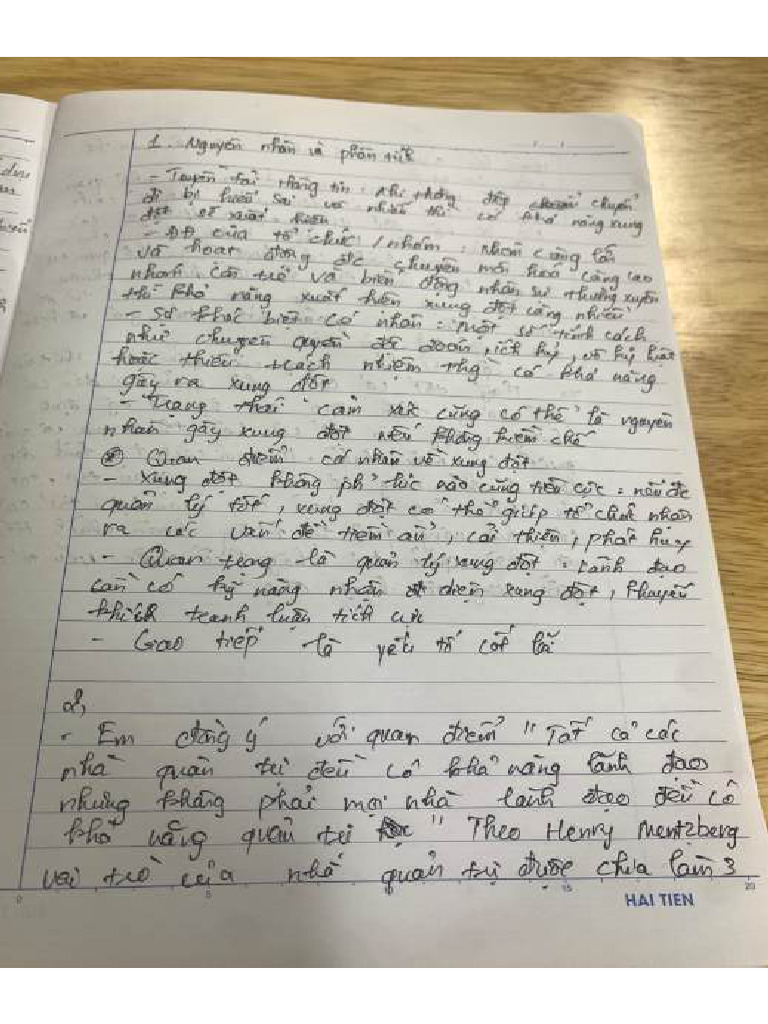 1. Nguyên nhân và phân tích
- Truyền tải thông tin: Khi thông điệp chuyển
đi bị hiểu sai với nhau thì có khả năng xung
đột sẽ xuất hiện
- ĐĐ của tổ chức / nhóm: nhóm càng lớn
và hoạt động đc chuyên môn hoá càng cao
nhanh, cản trở và biến động nhân sự thường xuyên
thì khả năng xuất hiện xung đột càng nhiều
- Sự khác biệt cá nhân: Một số tính cách
như chuyên quyền độc đoán, ích kỷ, vô kỷ luật
hoặc thiếu trách nhiệm thg có khả năng
gây ra xung đột
- Trạng thái cảm xúc cũng có thể là nguyên
nhân gây xung đột nếu không kiềm chế
* Quan điểm cá nhân về xung đột
- Xung đột không ph' lúc nào cũng tiêu cực: nếu đc
quản lý tốt, xung đột có thể giúp tổ chức nhận
ra các vấn đề tiềm ẩn, cải thiện, phát huy
- Quan trọng là quản lý xung đột: Lãnh đạo
cần có kỹ năng nhận diện xung đột, khuyến
khích tranh luận tích cực
- Giao tiếp là yếu tố cốt lõi
2,
- Em đồng ý với quan điểm " Tất cả các
nhà quản trị đều có khả năng lãnh đạo
nhưng không phải mọi nhà lãnh đạo đều có
khả năng quản trị " Theo Henry Mentzberg
vai trò của nhà quản trị được chia làm 3
0 5 15 20
HAI TIEN